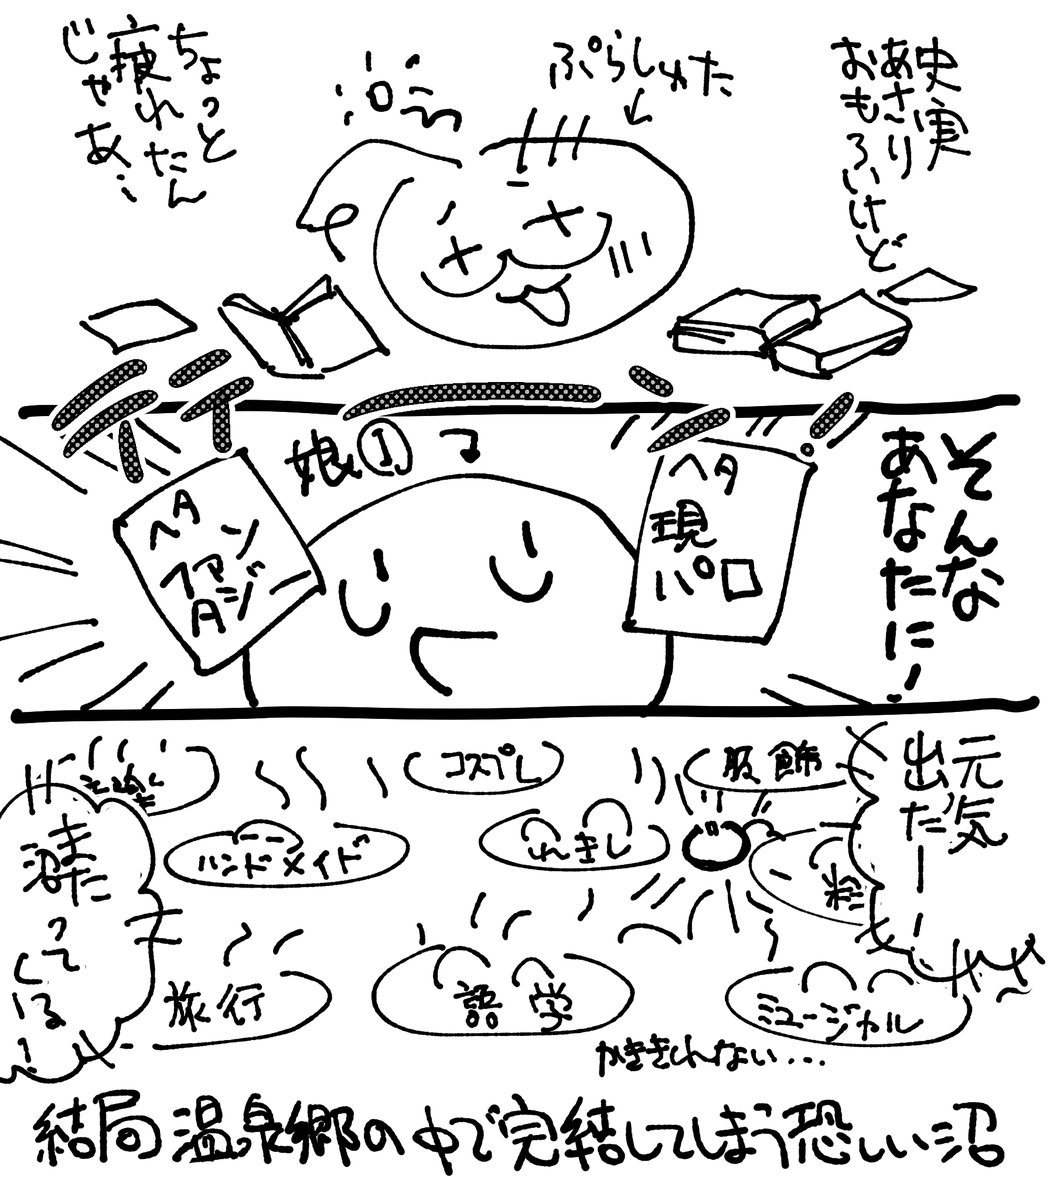 史実
あさり
おもろいけど
ぷらしゅた
ちょっと
疲れたん
じゃあ…
そんな
あなたに!
娘①
ヘタ
現
パロ
ヘタ
ファン
タジー
元気
出たーー
服飾
コスプレ
れきし
ハンドメイド
また
沼
ってくる
ミュージカル
語学
旅行
かききれない…
結局温泉郷の中で完結してしまう恐しい沼